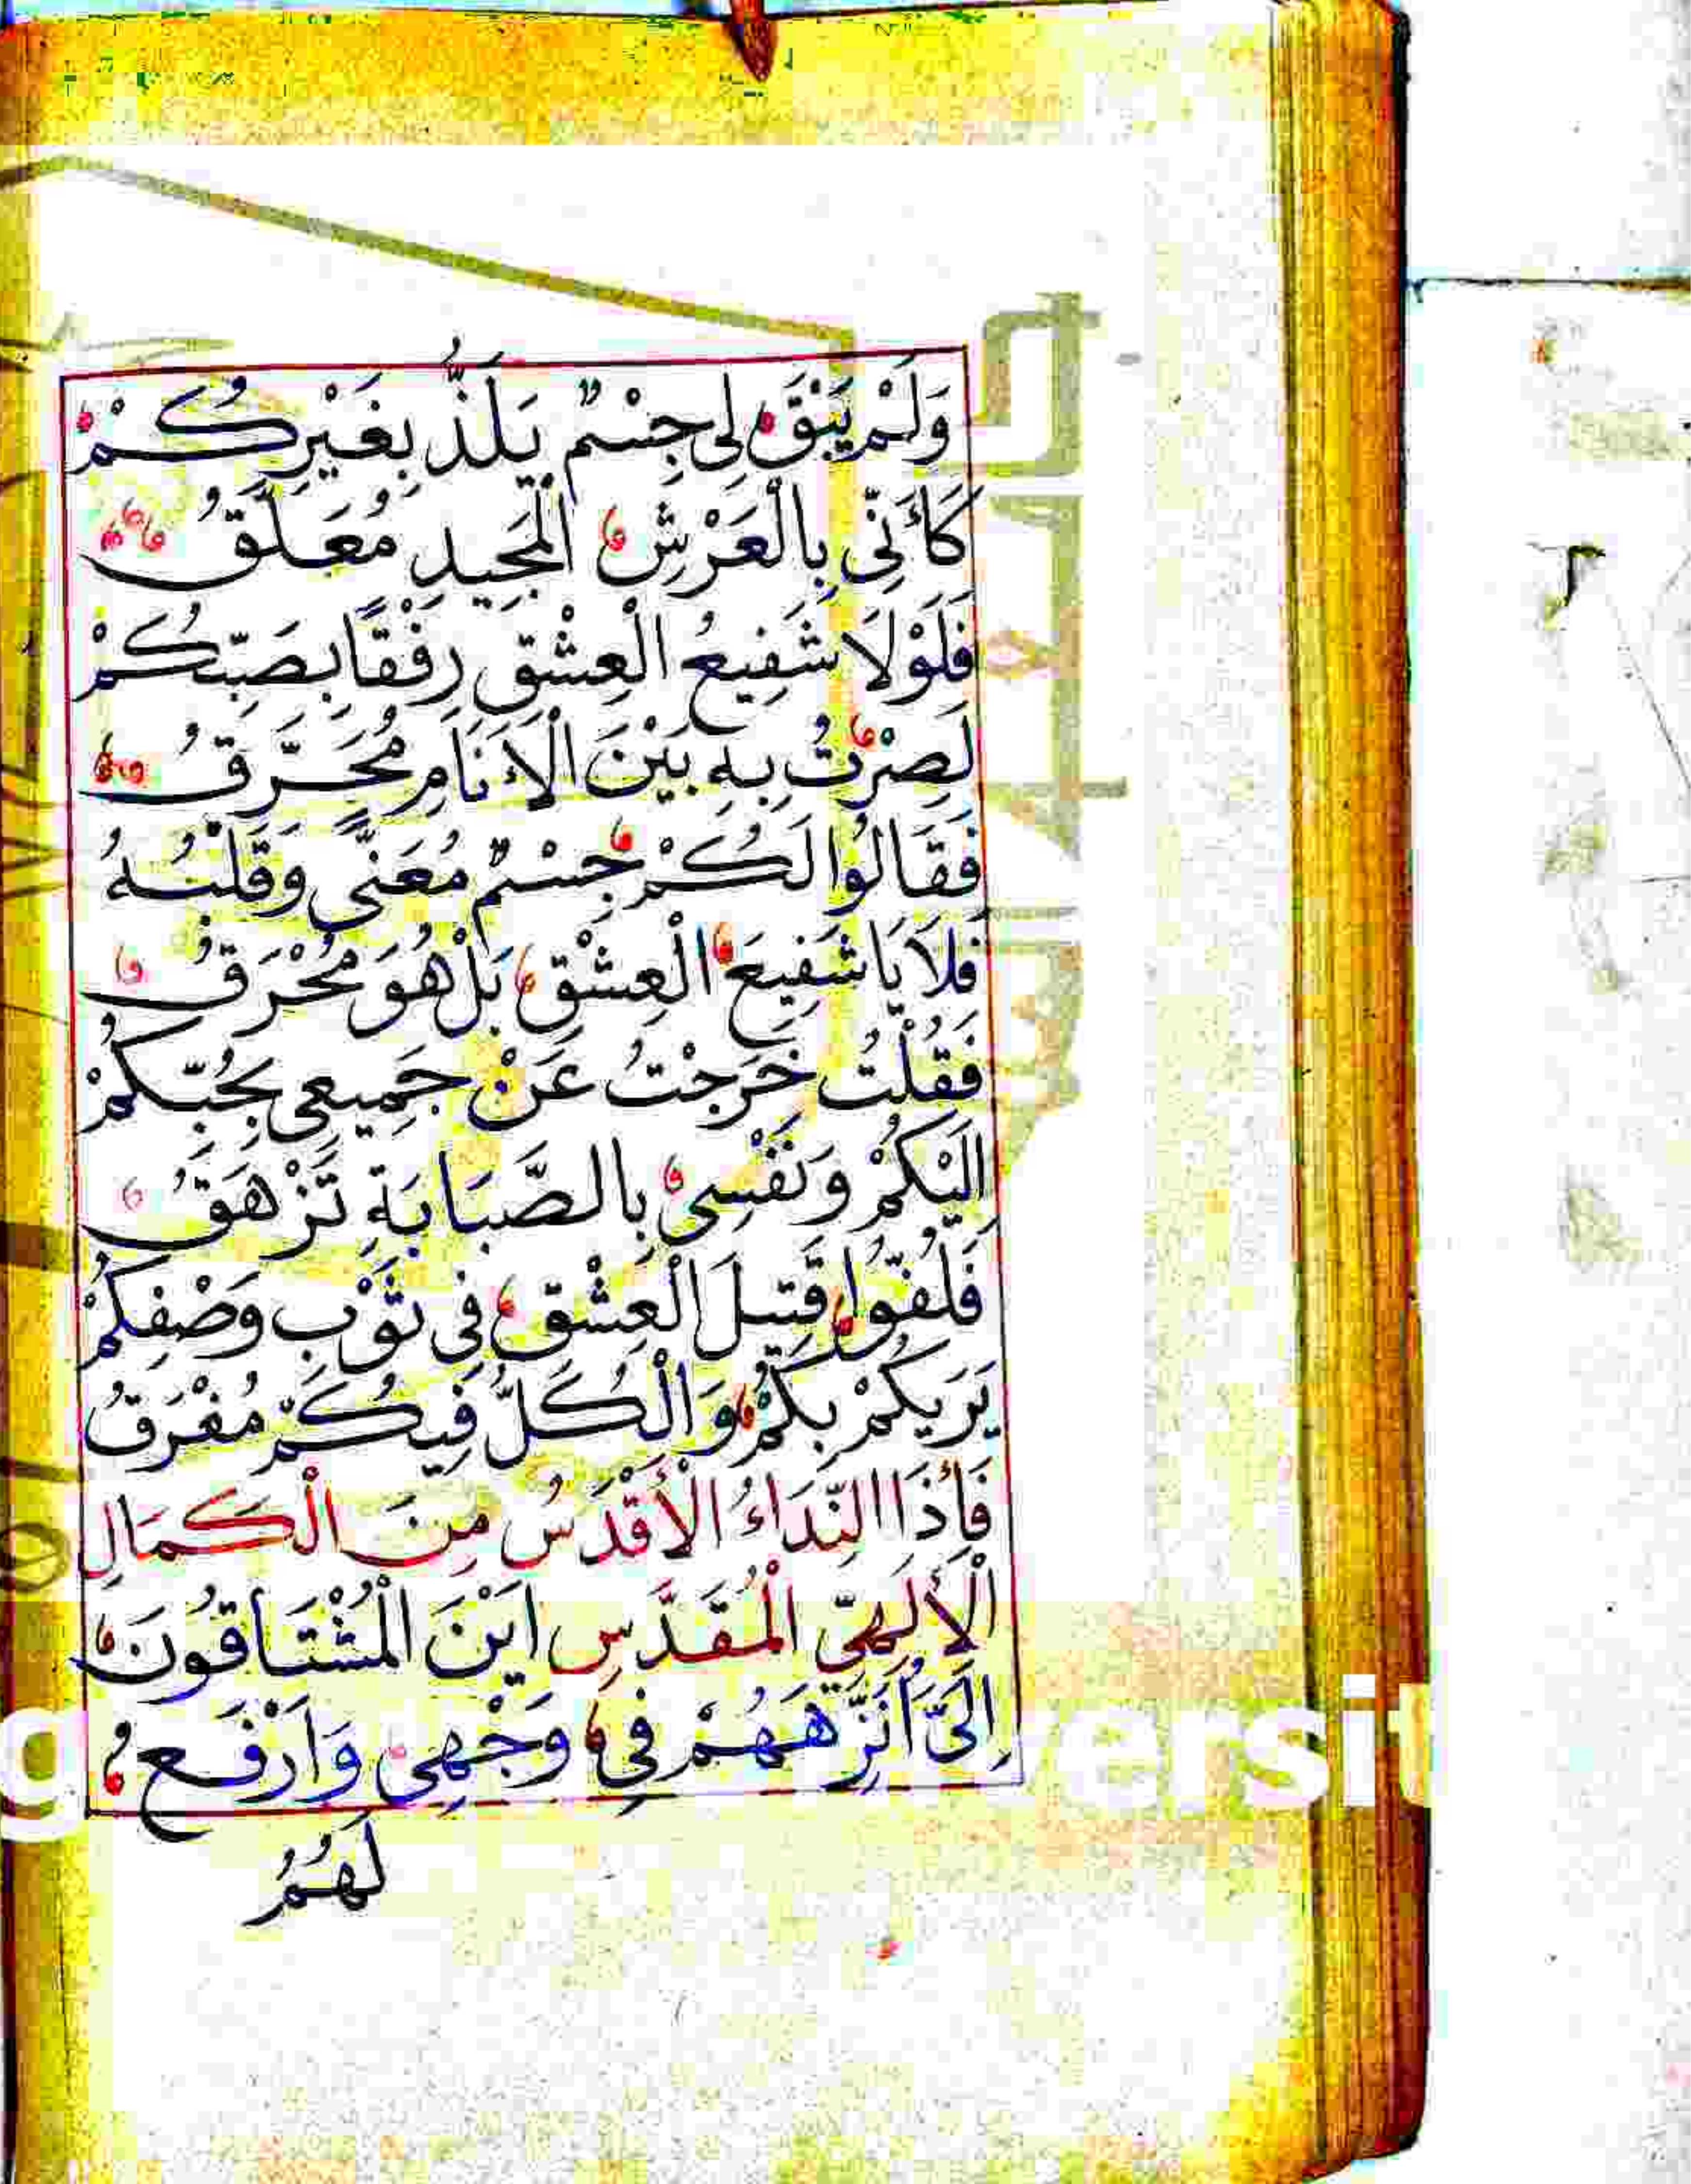 وَلَمْ يَبْقَ لِى جِسْمٌ يَلَذُّ بِغَيْرِكُمْ
كَأَنِّى بِالْعَرْشِ الْمَجِيدِ مُعَلَّقُ
فَلَوْلَا شَفِيعُ الْعِشْقِ رِفْقًا بِصَبِّكُمْ
لَصِرْتُ بِهِ بَيْنَ الْاَنَامِ مُحَرَّقُ
فَقَالُوا لَكُمْ جِسْمٌ مُعَنًّى وَقَلْبُهُ
فَلَا يَا شَفِيعَ الْعِشْقِ بَلْ هُوَ مُحْرَقُ
فَقُلْتُ خَرَجْتُ عَنْ جَمِيعِى بِحُبِّكُمْ
اِلَيْكُمْ وَنَفْسِى بِالصَّبَابَةِ تَزْهَقُ
فَلُفُّوا قَتِيلَ الْعِشْقِ فِى ثَوْبِ وَصْفِكُمْ
يَرَيكُمْ بِكُمْ وَالْكُلُّ فِيكُمْ مُغْرَقُ
فَاِذَا النِّدَاءُ الْأَقْدَسُ مِنَ الْكَمَالِ
الْأَلَهِىِّ الْمُقَدَّسِ اَيْنَ الْمُشْتَاقُونَ
اِلَىَّ اُنَزِّهَهُمْ فِى وَجْهِى وَاَرْفَع
لَهُمُ
g ersit